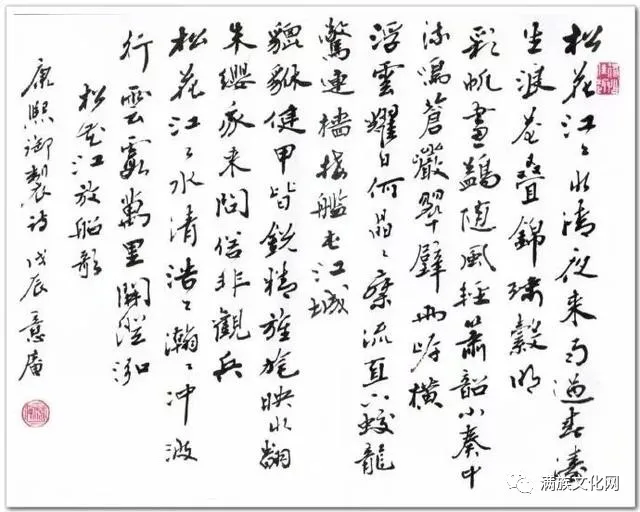 松花江〻水清夜来雨過春濤
生浪花疊錦绣縠明
彩帆畫鷁随風輕簫韶小奏中
流鳴蒼巖翠壁兩岸橫
浮雲耀日何晶〻乘流直下蛟龍
驚連檣接艦屯江城
貔貅健甲皆鋭精旌旄映水翻
朱纓我来問俗非觀兵
松花江〻水清浩〻瀚〻冲波
行雲霞萬里開澄泓
松花江放船歌
康熙御製诗 戊辰 意庵
满族文化网